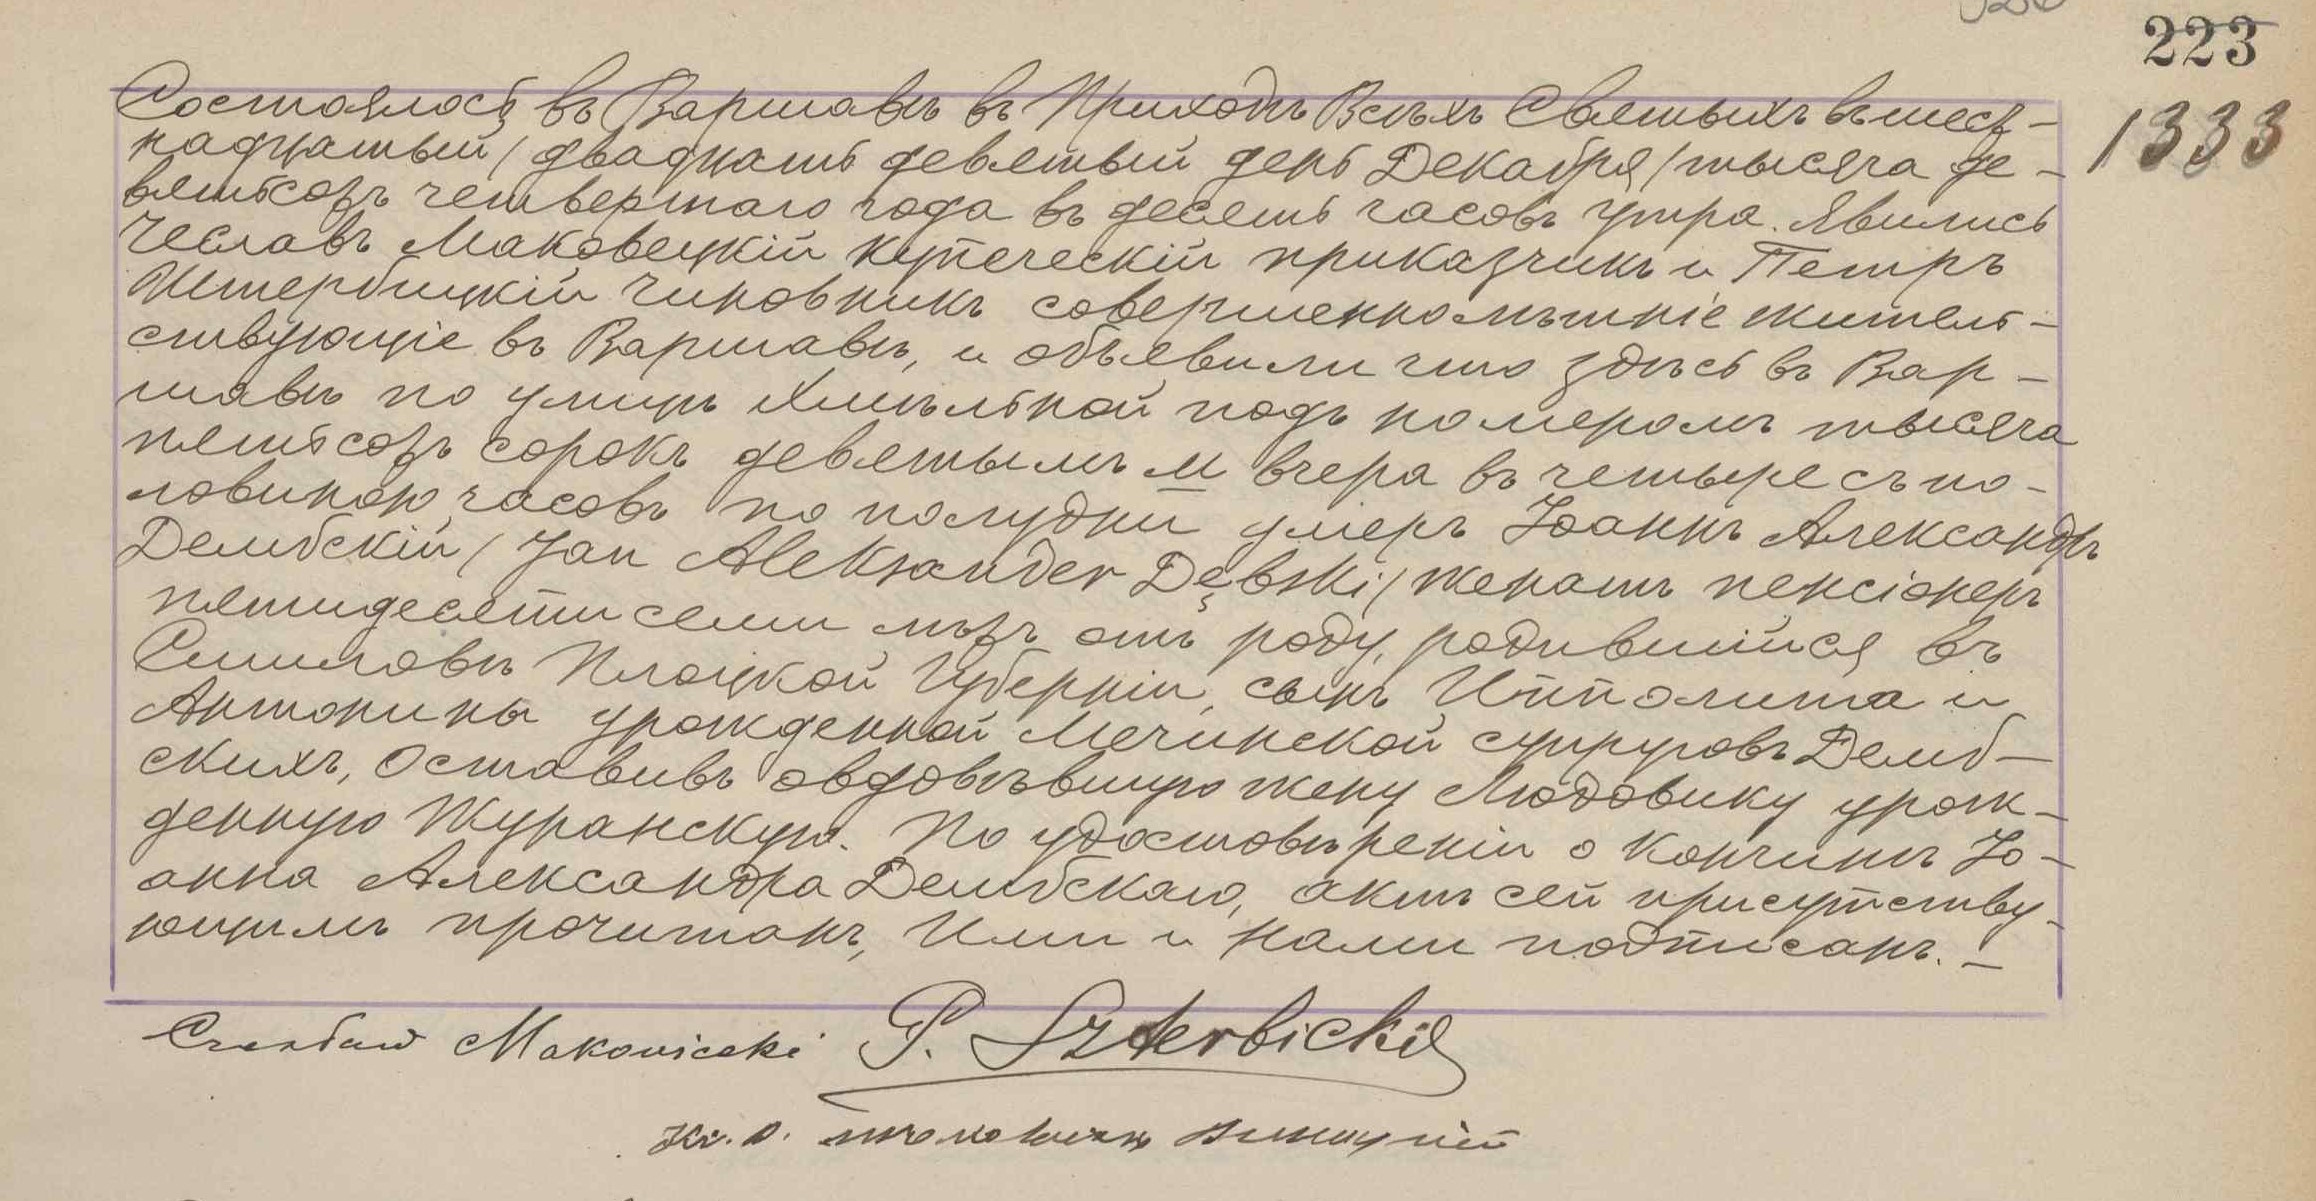 223
1333
Состоялось въ Варшавѣ въ Приходѣ Всѣхъ Святыхъ въ шест-
надцатый / двадцать девятый день Декабря / тысяча де-
вятьсотъ четвертаго года въ десять часовъ утра. Явились
Чеславъ Маковецкій купеческій приказчикъ и Петръ
Штербицкій чиновникъ совершеннолѣтніе житель-
ствующіе въ Варшавѣ, и объявили что здѣсь въ Вар-
шавѣ по улицѣ Хмѣльной подъ номеромъ тысяча
пятьсотъ сорокъ девятымъ м вчера въ четыре съ по-
ловиною часовъ по полудни умеръ Іоаннъ Александръ
Дембскій / Jan Aleksander Dębski / женатъ пенсіонеръ
пятидесяти семи лѣтъ отъ роду, родившійся въ
Смиловѣ Плоцкой Губерніи, сынъ Ипполита и
Антонины урожденной Мечинской супруговъ Демб-
скихъ, Оставивъ овдовѣвшую жену Людовику урож-
денную Журанскую. По удостовѣреніи о кончинѣ Іо-
анна Александра Дембскаго, актъ сей присутству-
ющимъ прочитанъ, Ими и Нами подписанъ. —
Czesław Makowiecki P. Szterbicki